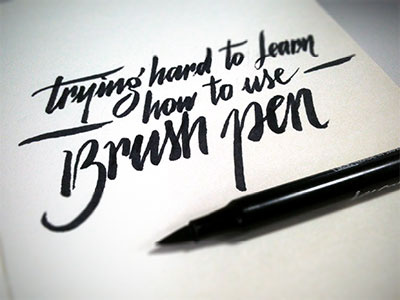 trying hard to learn
how to use
Brush pen